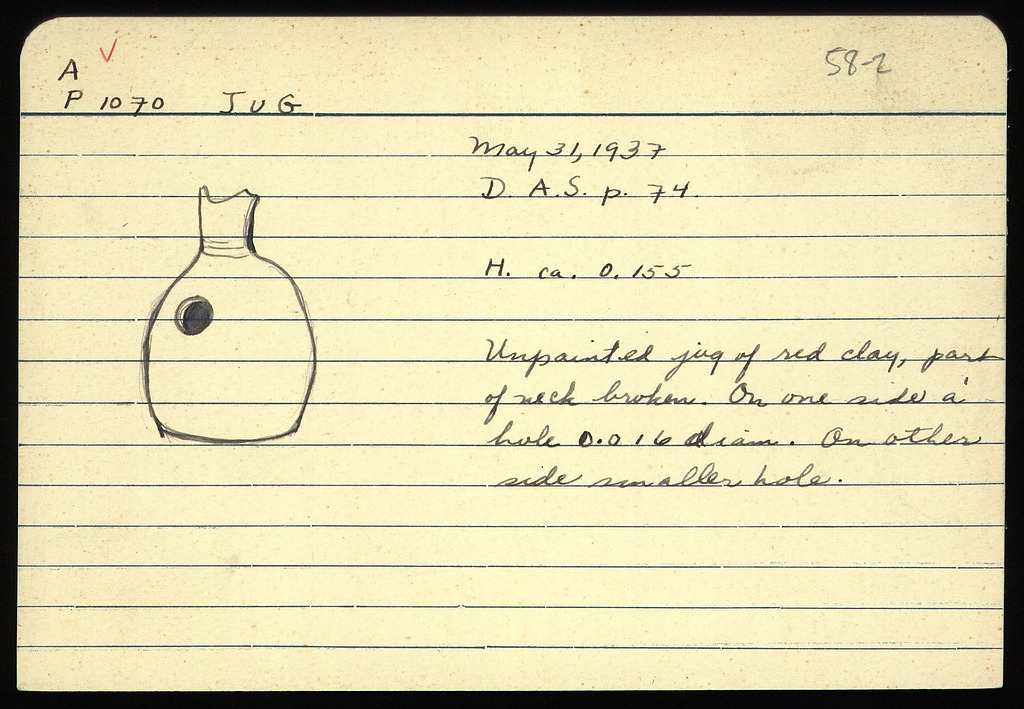 A
58-2
P 1070 JUG
May 31, 1937
D. A.S. p. 74.
H. ca. 0.155
Unpainted jug of red clay, part
of neck broken. On one side a
hole 0.016 diam. On other
side smaller hole.